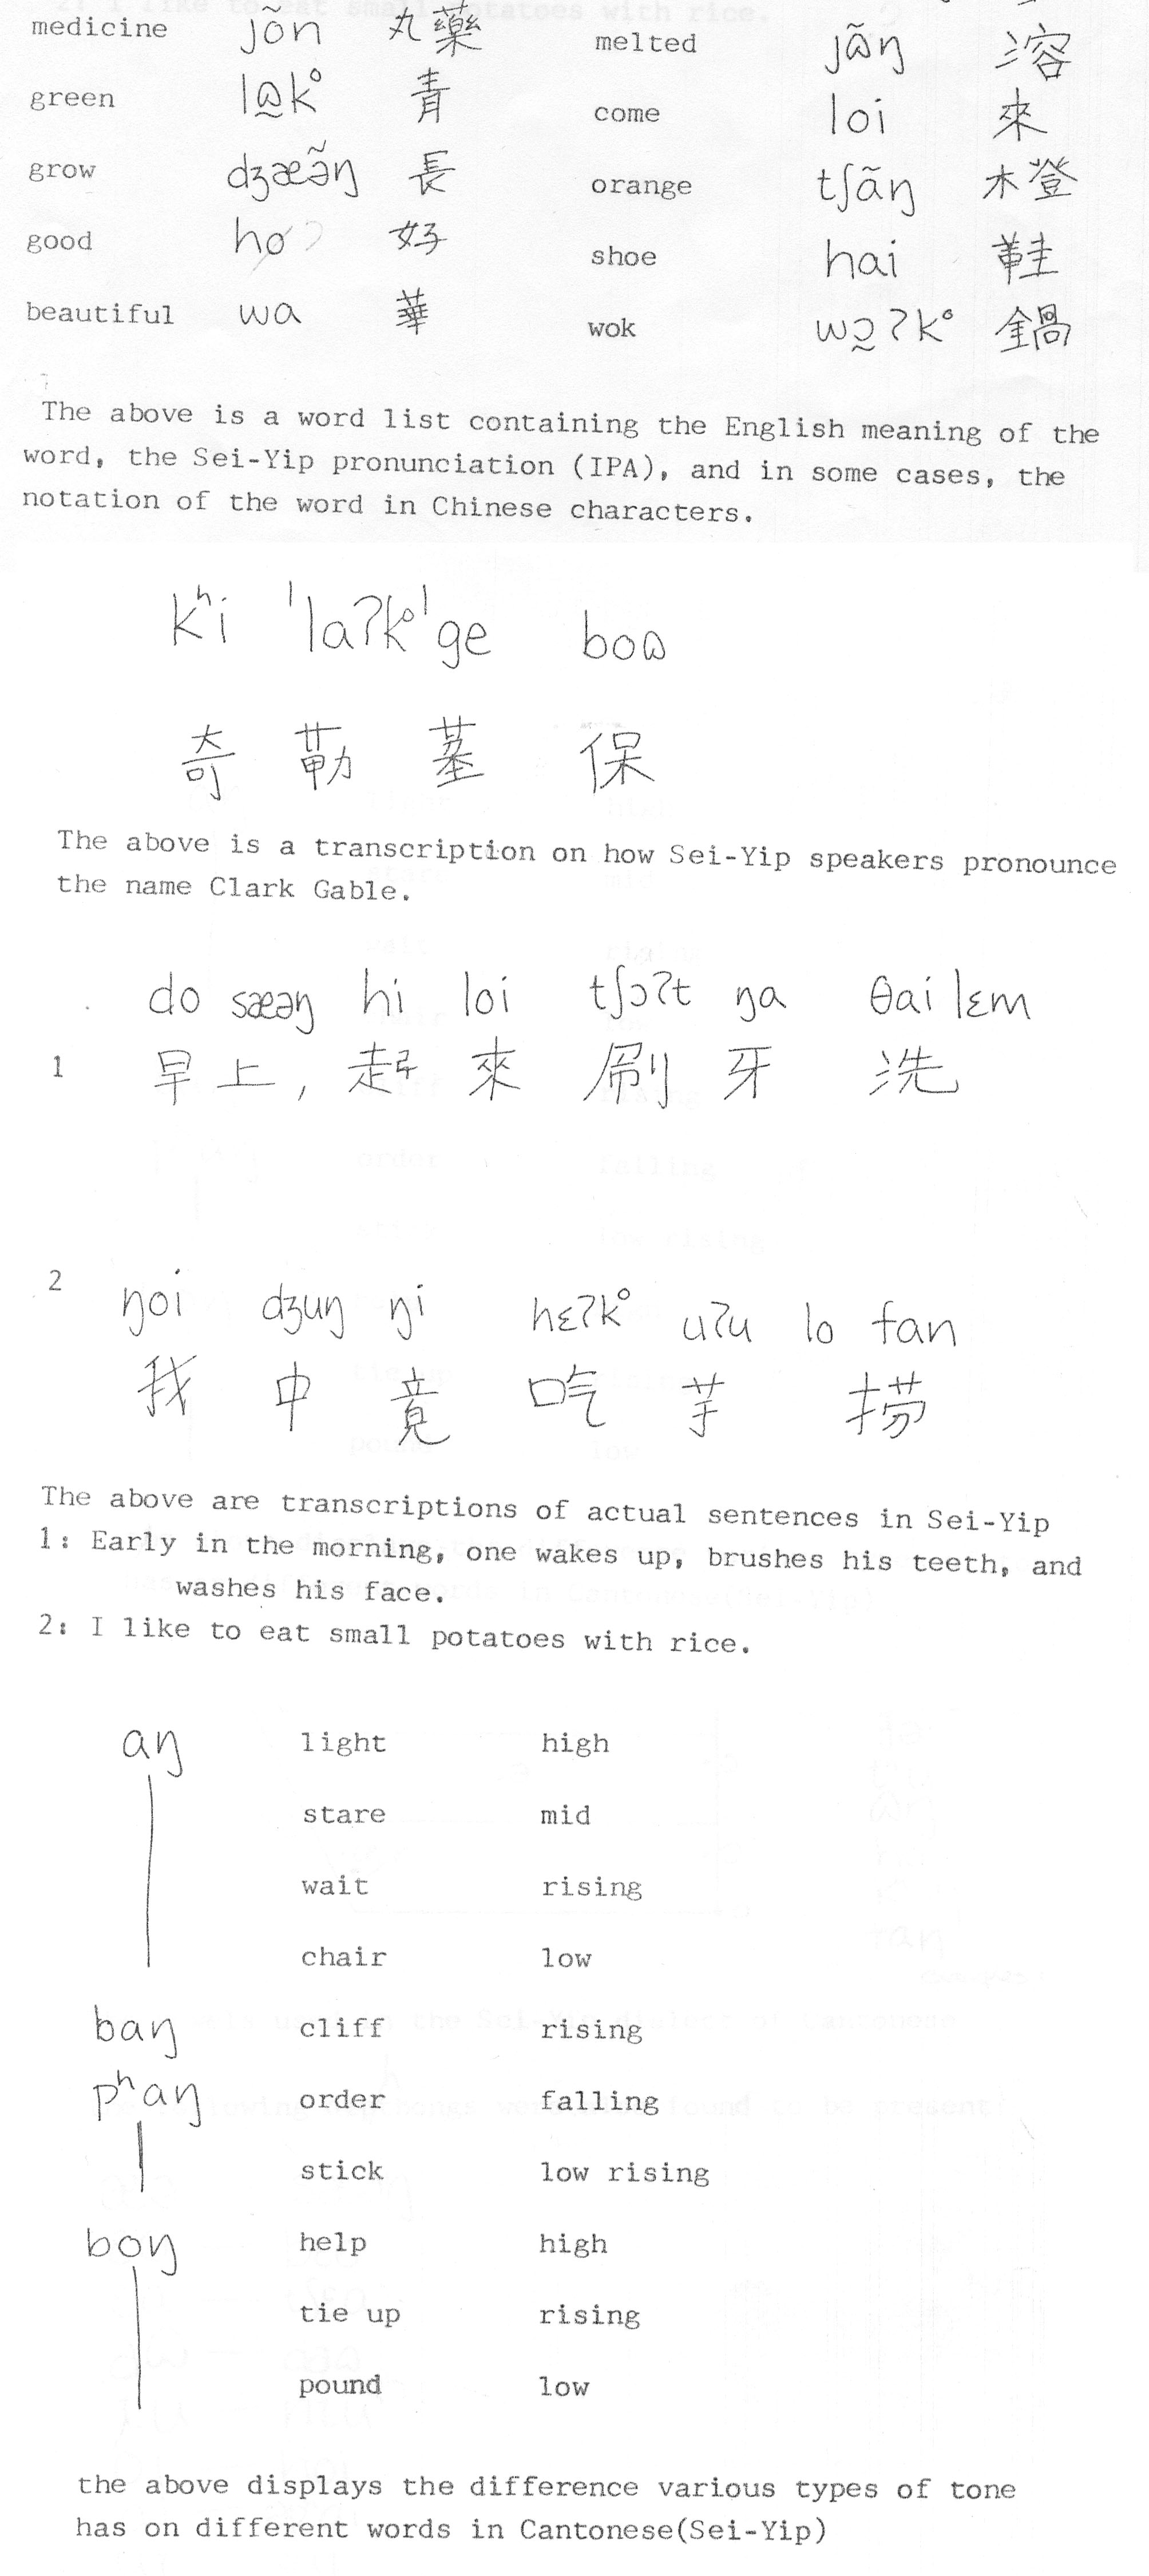 medicine jõn 丸藥 melted jɷ̃ŋ 溶
green lɷ̰k° 青 come loi 來
grow dʒæə̃ŋ 長 orange tʃãŋ 木登
good ho 好 shoe hai 鞋
beautiful wa 華 wok wɔ̰ʔk° 鍋
The above is a word list containing the English meaning of the
word, the Sei-Yip pronunciation (IPA), and in some cases, the
notation of the word in Chinese characters.
kʰi ˈlaʔk°ˈge boɷ
奇 勒 基 保
The above is a transcription on how Sei-Yip speakers pronounce
the name Clark Gable.
do sæəŋ hi loi tʃɔʔt ŋa θai lɛm
1 早上, 起來 刷 牙 洗
2 ŋoi dʒuŋ ŋi hɛʔk° uʔu lo fan
我 中 竟 吃 芋 撈
The above are transcriptions of actual sentences in Sei-Yip
1: Early in the morning, one wakes up, brushes his teeth, and
washes his face.
2: I like to eat small potatoes with rice.
aŋ light high
stare mid
wait rising
chair low
baŋ cliff rising
pʰaŋ order falling
stick low rising
boŋ help high
tie up rising
pound low
the above displays the difference various types of tone
has on different words in Cantonese(Sei-Yip)